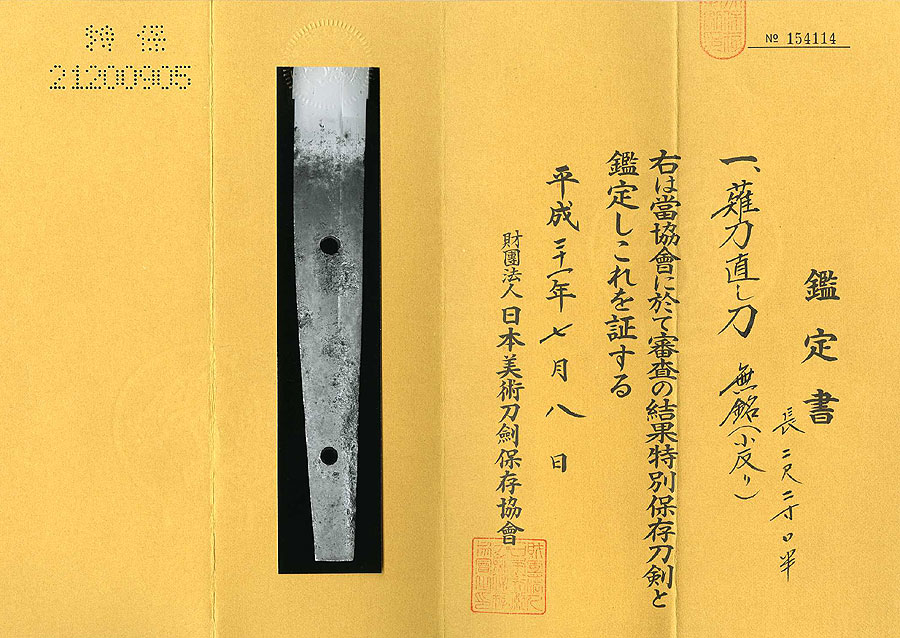 特保
21200905
№ 154114
鑑定書
一、薙刀直し刀 無銘(小反り)
長二尺二寸〇半
右は當協會に於て審査の結果特別保存刀剣と
鑑定しこれを証する
平成二十一年七月八日
財團法人日本美術刀劍保存協會